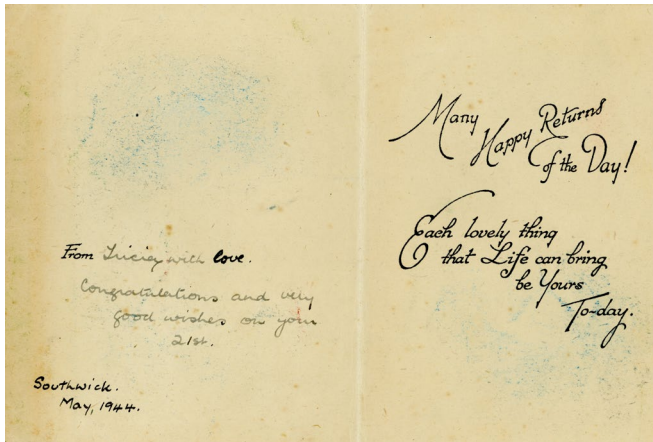 From with love.
Congratulations and very
good wishes on your
21st.
Southwick.
May, 1944.
Many
Happy Returns
of the Day!
Each lovely thing
that Life can bring
be Yours
To-day.